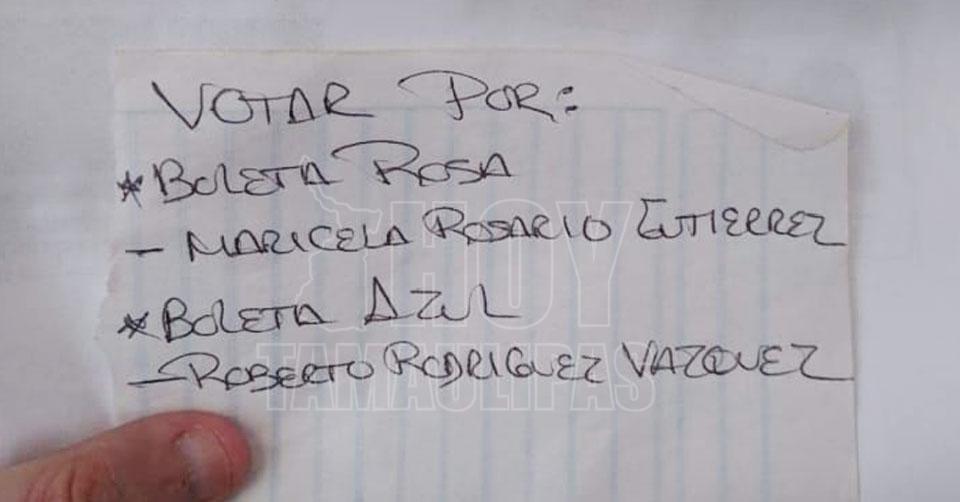 VOTAR POR:
* BOLETA ROSA
- MARICELA ROSARIO GUTIERREZ
* BOLETA AZUL
- ROBERTO RODRIGUEZ VAZQUEZ
HOY
TAMAULIPAS